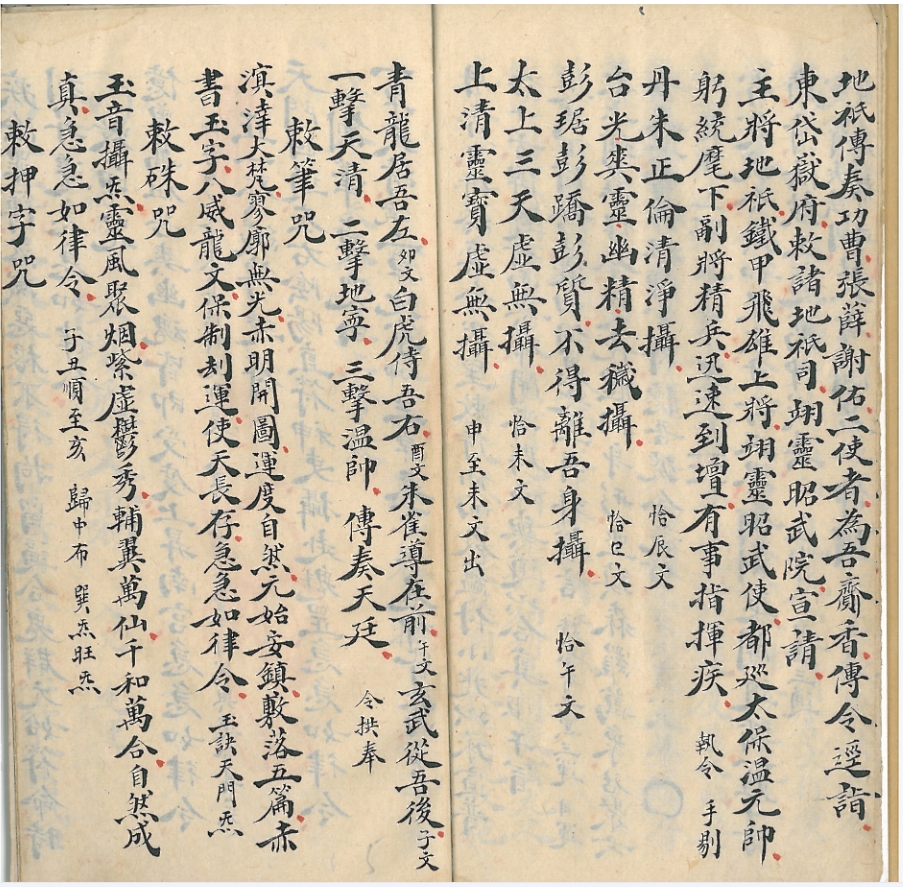 地祇傳奏功曹張薛謝佑二使者為吾齎香傳令逕詣
東岱嶽府敕諸地祇司翊靈昭武院宣請
主將地祇鐵甲飛雄上將翊靈昭武使都巡太保温元帥
躬統麾下副將精兵迅速到壇有事指揮疾 執令 手剔
丹朱正倫清淨攝 恰辰文
台光爽靈幽精去穢攝 恰巳文
彭琚彭躋彭質不得離吾身攝 恰午文
太上三天虛無攝 恰未文
上清靈寶虛無攝 申至未文出
青龍居吾左卯文白虎侍吾右酉文朱雀導在前午文玄武從吾後子文
一擊天清二擊地寧三擊温帥傳奏天廷 令拱奉
敕筆咒
溟涬大梵寥廓無光赤明開圖運度自然元始安鎮敷落五篇赤
書玉字八威龍文保制刼運使天長存急急如律令 玉訣天門炁
敕硃咒
玉音攝炁靈風聚烟紫虛鬱秀輔翼萬仙千和萬合自然成
真急急如律令 子丑順至亥 歸中布 巽炁旺炁
敕押字咒